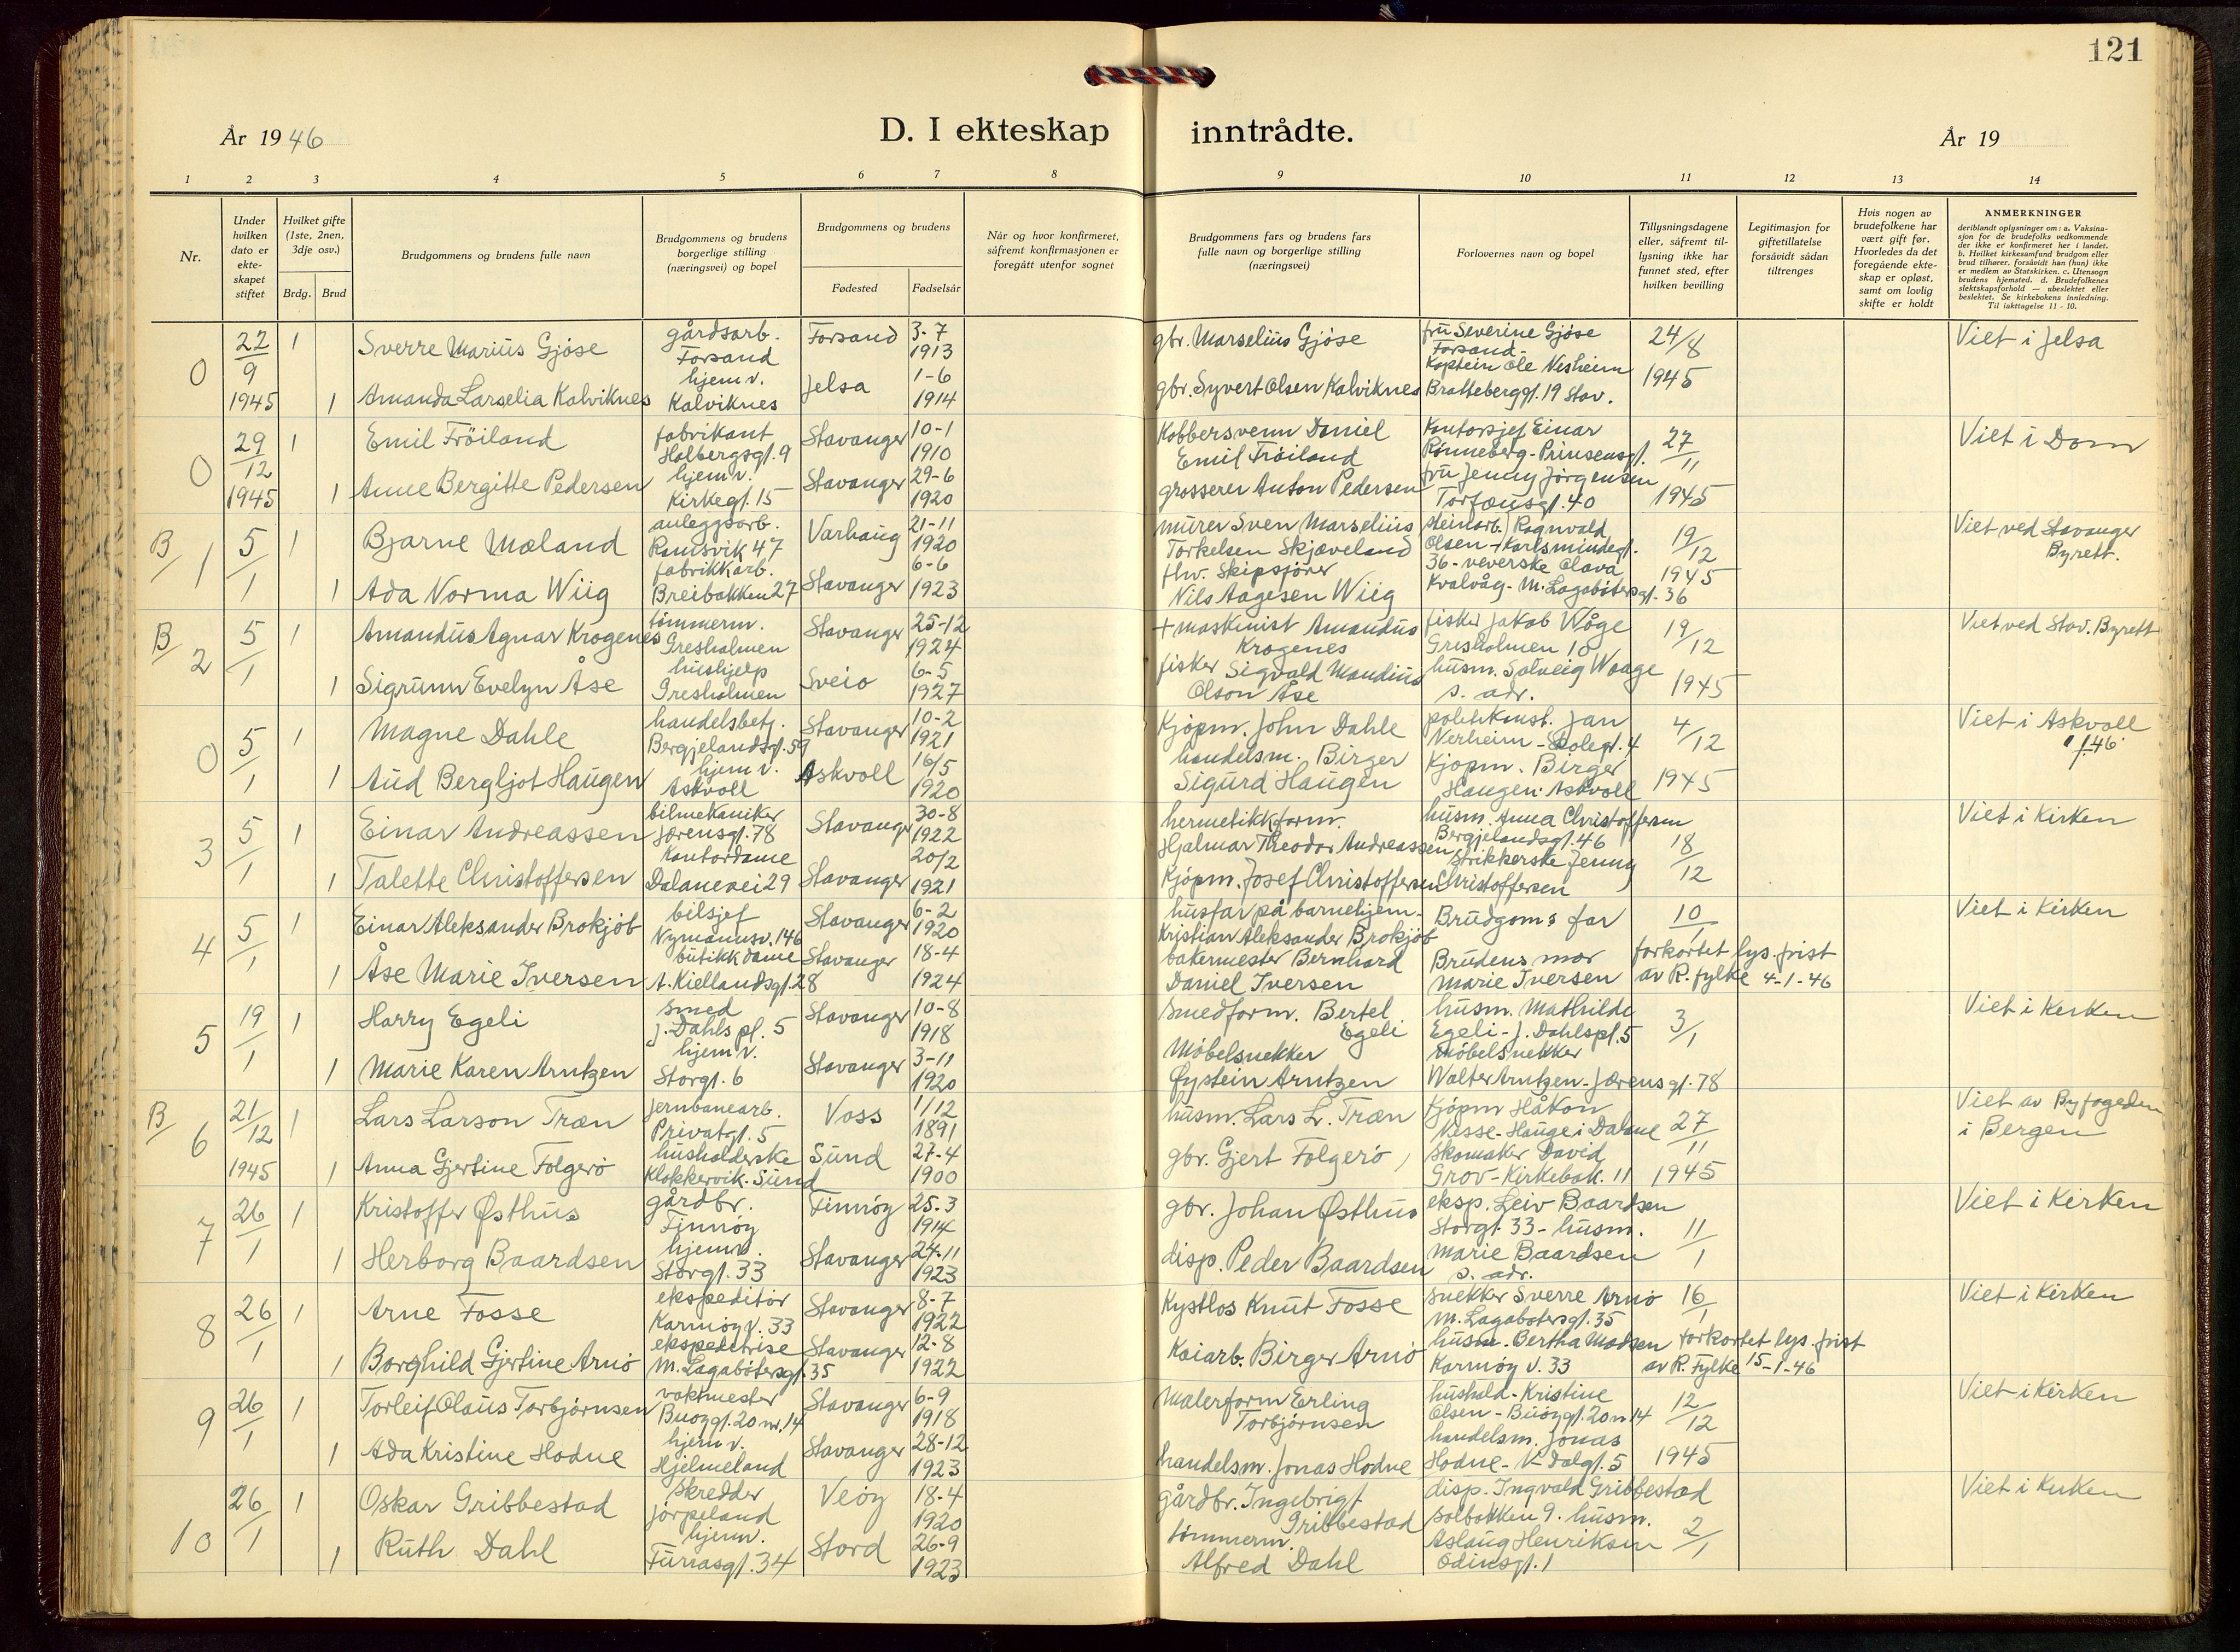 121
År 1946
D. I ekteskap inntrådte.
År 19
1 2 3 4 5 6 7 8 9 10 11 12 13 14
Nr.
Under hvilken dato er ekteskapet stiftet
Hvilket gifte (1ste, 2nen, 3dje osv.)
Brdg. Brud
Brudgommens og brudens fulle navn
Brudgommens og brudens borgerlige stilling (næringsvei) og bopel
Brudgommens og brudens
Fødested Fødselsår
Når og hvor konfirmeret, såfremt konfirmasjonen er foregått utenfor sognet
Brudgommens fars og brudens fars fulle navn og borgerlige stilling (næringsvei)
Forlovernes navn og bopel
Tillysningsdagene eller, såfremt tillysning ikke har funnet sted, efter hvilken bevilling
Legitimasjon for giftetillatelse forsåvidt sådan tiltrenges
Hvis nogen av brudefolkene har vært gift før. Hvorledes da det foregående ekteskap er opløst, samt om lovlig skifte er holdt
ANMERKNINGER
deriblandt oplysninger om: a. Vaksinasjon for de brudefolks vedkommende der ikke er konfirmeret her i landet. b. Hvilket kirkesamfund brudgom eller brud tilhører, forsåvidt han (hun) ikke er medlem av Statskirken. c. Utensogn brudens hjemsted. d. Brudefolkenes slektskapsforhold — ubeslektet eller beslektet. Se kirkebokens innledning. Til iakttagelse 11 - 10.
0 22/9 1945 1 Sverre Marius Gjøse gårdsarb. Forsand Forsand 3-7 1913 gbr. Marselius Gjøse fru Severine Gjøse Forsand- 24/8 1945 Viet i Jelsa
1 Amanda Larselia Kalviknes hjemv. Kalviknes Jelsa 1-6 1914 gbr. Syvert Olsen Kalviknes Kaptein Ole Nesheim Brattebergt. 19 Stav.
0 29/12 1945 1 Emil Frøiland fabrikant Holbergsgt. 9 Stavanger 10-1 1910 Kobbersvenn Daniel Emil Frøiland Kontorsjef Einar Rønneberg - Prinsensgt. 27/11 1945 Viet i Dom
1 Anne Bergitte Pedersen hjemv. Kirkegt. 15 Stavanger 29-6 1920 grosserer Anton Pedersen fru Jenny Jørgensen Torfæusgt. 40
B/1 5/1 1 Bjarne Mæland anleggsarb. Ramsvik 47 Varhaug 21-11 1920 murer Sven Marselius Torkelsen Skjæveland steinarb. Ragnvald Olsen - Karlsmindegt. 36 - 19/12 1945 Viet ved Stavanger Byrett.
1 Ada Norma Wiig fabrikkarb. Breibakken 27 Stavanger 6-6 1923 fhv. Skipsfører Nils Aagesen Wiig veverske Olava Kvalvåg - M. Lagabøtersgt. 36
B/2 5/1 1 Amandus Agnar Krogenes tømmerm. Gresholmen Stavanger 25-12 1924 + maskinist Amandus Krogenes fisker Jakob Wåge Gresholmen 10 19/12 1945 Viet ved Stav. Byrett
1 Sigrunn Evelyn Åse hushjelp Gresholmen Sveio 6-5 1927 fisker Sigvald Mandius Olson Åse husm. Solveig Waage s. adr.
0 5/1 1 Magne Dahle handelsbetj. Bergjelandsgt. 59 Stavanger 10-2 1921 Kjøpm. John Dahle politikonst. Jan Nerheim - Skolegt. 4 4/12 1945 Viet i Askvoll 46
1 Aud Bergljot Haugen hjemv. Askvoll Askvoll 16/5 1920 handelsm. Birger Sigurd Haugen Kjøpm. Birger Haugen. Askvoll
3 5/1 1 Einar Andreassen bilmekaniker Jærensgt. 78 Stavanger 30-8 1922 hermetikkform. Hjalmar Theodor Andreassen husm. Anna Christoffersen Bergjelandsgt. 46 18/12 Viet i Kirken
1 Talette Christoffersen Kontordame Dalanevei 29 Stavanger 20/2 1921 Kjøpm. Josef Christoffersen strikkerske Jenny Christoffersen
4 5/1 1 Einar Aleksander Brokjøb bilsjef Nymannsv. 146 Stavanger 6-2 1920 husfar på barnehjem. Kristian Aleksander Brokjøb Brudgoms far 10/1 Viet i Kirken
1 Åse Marie Iversen butikkdame A. Kiellandsgt. 28 Stavanger 18-4 1924 bakermester Bernhard Daniel Iversen Brudens mor Marie Iversen forkortet lys. frist av R. fylke 4-1-46
5 19/1 1 Harry Egeli smed J. Dahls pl. 5 Stavanger 10-8 1918 Smedform. Bertel Egeli husm. Mathilde Egeli - J. Dahlspl. 5 3/1 Viet i Kirken
1 Marie Karen Arntzen hjemv. Storgt. 6 Stavanger 3-11 1920 Møbelsnekker Øystein Arntzen møbelsnekker Walter Arntzen - Jærensgt. 78
B/6 21/12 1945 1 Lars Larson Træn jernbanearb. Privatgt. 5 Voss 1/12 1891 husm. Lars L. Træn Kjøpm Håkon Nesse - Hauge i Dalane 27/11 1945 Viet av Byfogeden i Bergen
1 Anna Gjertine Folgerø husholderske Klokkervik. Sund Sund 27-4 1900 gbr. Gjert Folgerø skomaker David Grov - Kirkebak. 11
7 26/1 1 Kristoffer Østhus gårdbr. Finnøy Finnøy 25.3 1914 gbr. Johan Østhus eksp. Leiv Baardsen Storgt. 33 - 11/1 Viet i Kirken
1 Herborg Baardsen hjemv. Storgt. 33 Stavanger 24-11 1923 disp. Peder Baardsen husm. Marie Baardsen s. adr.
8 26/1 1 Arne Fosse ekspeditør Karmøy v. 33 Stavanger 8-7 1922 Kystlos Knut Fosse snekker Sverre Arnø M. Lagabøtersgt. 35 16/1 Viet i Kirken
1 Borghild Gjertine Arnø ekspeditrise M. Lagabøtersgt. 35 Stavanger 12-8 1922 Kaiarb. Birger Arnø husm. Bertha Madsen Karmøy v. 33 forkortet lys. frist av R. Fylke 15-1-46
9 26/1 1 Torleif Olaus Torbjørnsen vaktmester Buøygt. 20 nr. 14 Stavanger 6-9 1918 Malerform Erling Torbjørnsen hushold. Kristine Olsen - Buøygt. 20 n 14 12/12 1945 Viet i Kirken
1 Ada Kristine Hodne hjemv. Hjelmeland Stavanger 28-12 1923 handelsm. Jonas Hodne handelsm. Jonas Hodne - V-Dalgt. 5
10 26/1 1 Oskar Gribbestad skredder Jørpeland Veøy 18-4 1920 gårdbr. Ingebrigt Gribbestad disp. Ingvald Gribbestad solbakken 9. 2/1 Viet i Kirken
1 Ruth Dahl hjemv. Furrasgt. 34 Stord 26-9 1923 tømmerm. Alfred Dahl husm. Aslaug Henriksen Odinsgt. 1